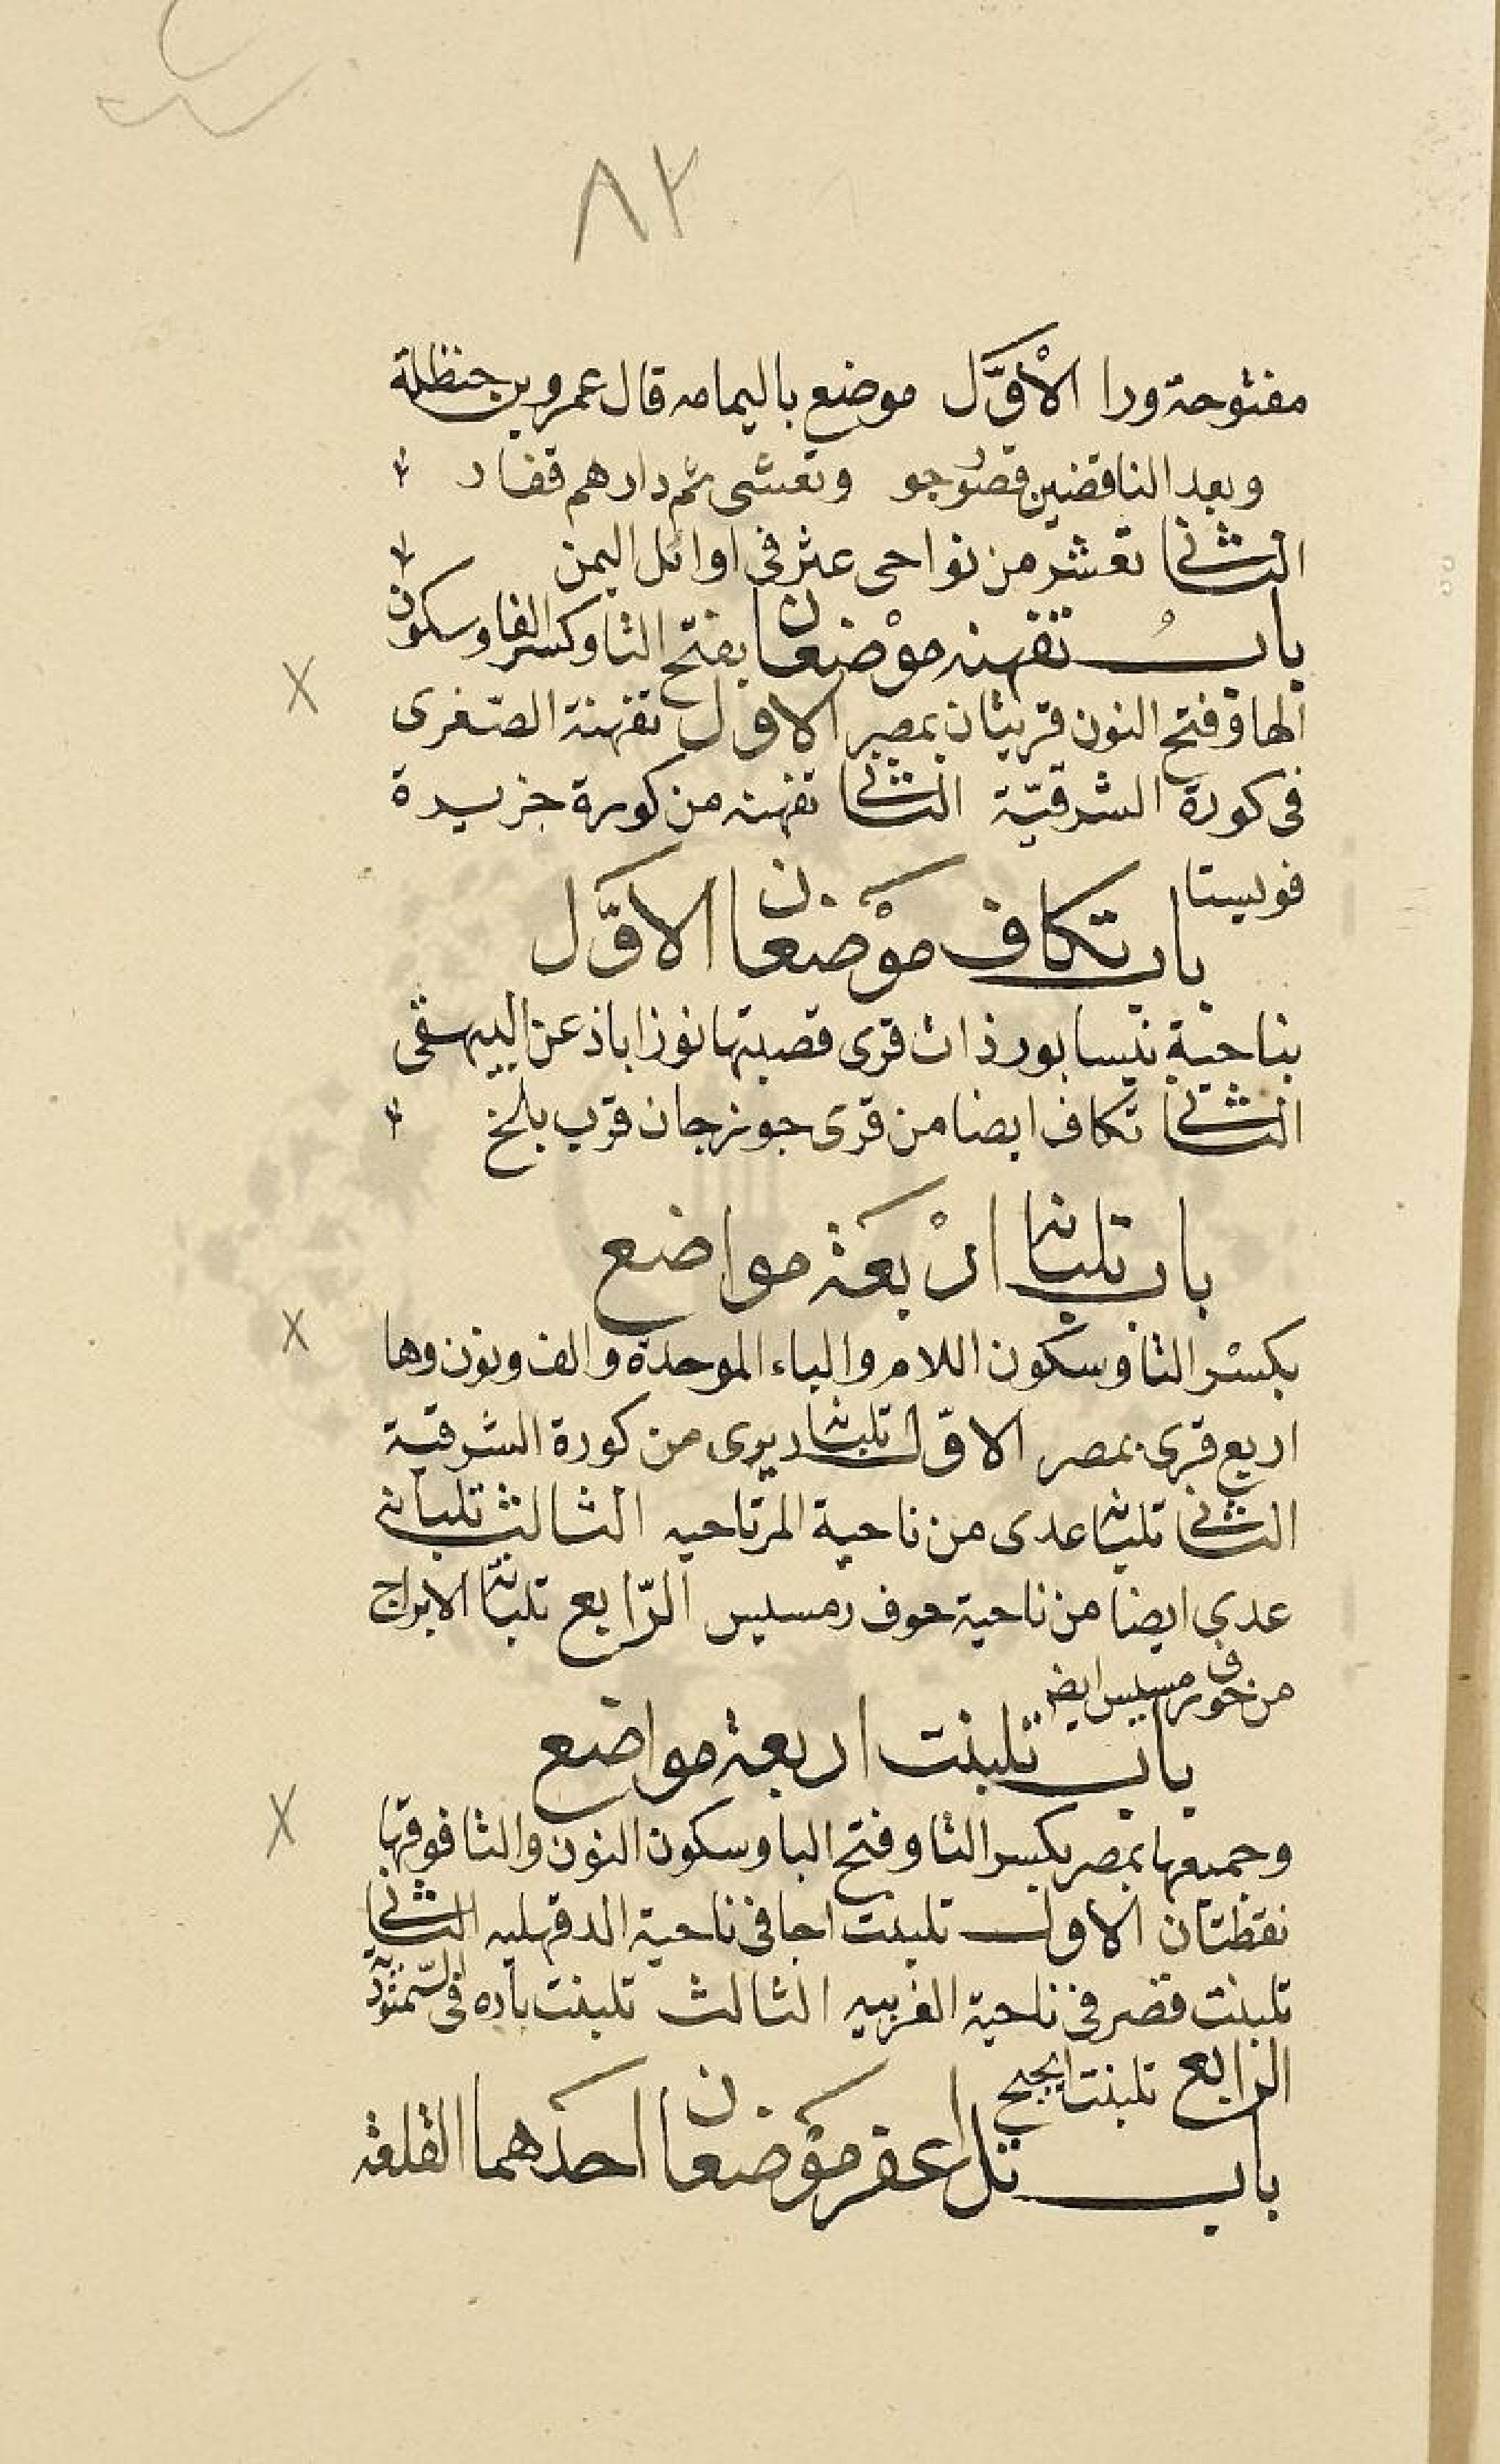 ٨٢
مفتوحة ورا الأوَّل موضع باليمامه قال عمرو بن حنظلة
وبعد الناقضين قصور جو وتعشى ثم دارهم قفار
الثانى تعشر من نواحى عثر فى اوائل اليمن
باب تفهنه موضعان بفتح التا وكسر الفا وسكون
الها وفتح النون قريتان بمصر الاول تفهنة الصّغرى
فى كورة الشرقيّة الثانى تفهنه من كورة جزيرة
قويسنا
باب تكاف موْضعان الاوَّل
بناحية نيسابور ذات قرى قصبتها نوزاباذ عن البيهقى
الثانى تكاف ايضا من قرى جوزجان قرب بلخ
باب تلبانه ارْبعة مواضع
بكسْر التا وسكون اللام والباء الموحدة والف ونون وها
اربع قرى بمصر الاوّل تلبانه ديرى من كورة الشرقية
الثانى تلبانه عدى من ناحية المرتاحيه الثالث تلبانه
عدى ايضا من ناحية حوف رمسيس الرّابع تلبانة الابراج
من حوف رمسيس ايضا
باب تلبنت اربعة مواضع
وجميعها بمصر بكسر التا وفتح البا وسكون النون والتا فوقها
نقطتان الاول تلبنت اجا فى ناحية الدقهليه الثانى
تلبنت قصر فى ناحية الغربيه الثالث تلبنت باره فى السّمنّودية
الرابع تلبنت ابجيج
باب تل اعفر موْضعان احدهما القلعة